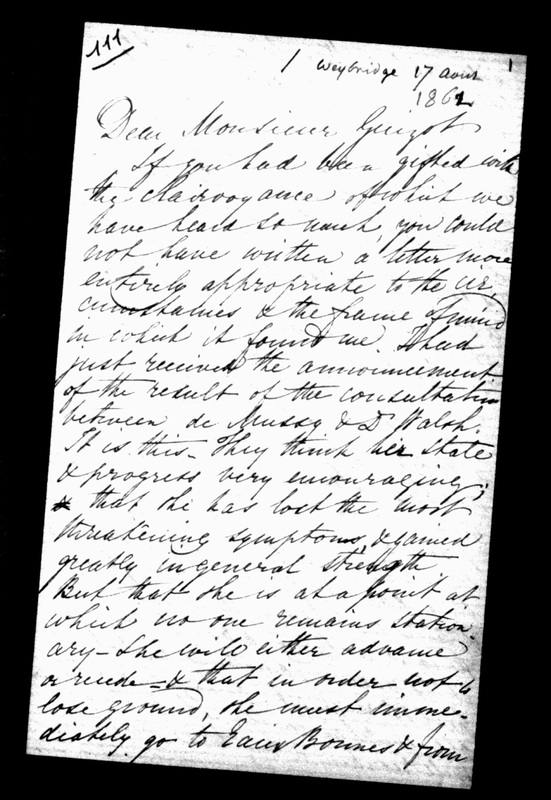 111
Weybridge 17 Aout
1862
Dear Monsieur Guizot
If you had been gifted with
the clairvoyance of which we
have heard so much, you could
not have written a letter more
entirely appropriate to the cir
cumstances & the frame of mind
in which it found me. I had
just received the announcement
of the result of the consultation
between de Mussy & Dr Walsh.
It is this - They think her state
& progress very encouraging;
& that she has lost the most
threatening symptoms, & gained
greatly in general strength
But that she is at a point at
which no one remains station
ary - She will either advance
or recede - & that in order not to
lose ground, she must imme-
diately go to Eaux Bonnes & from